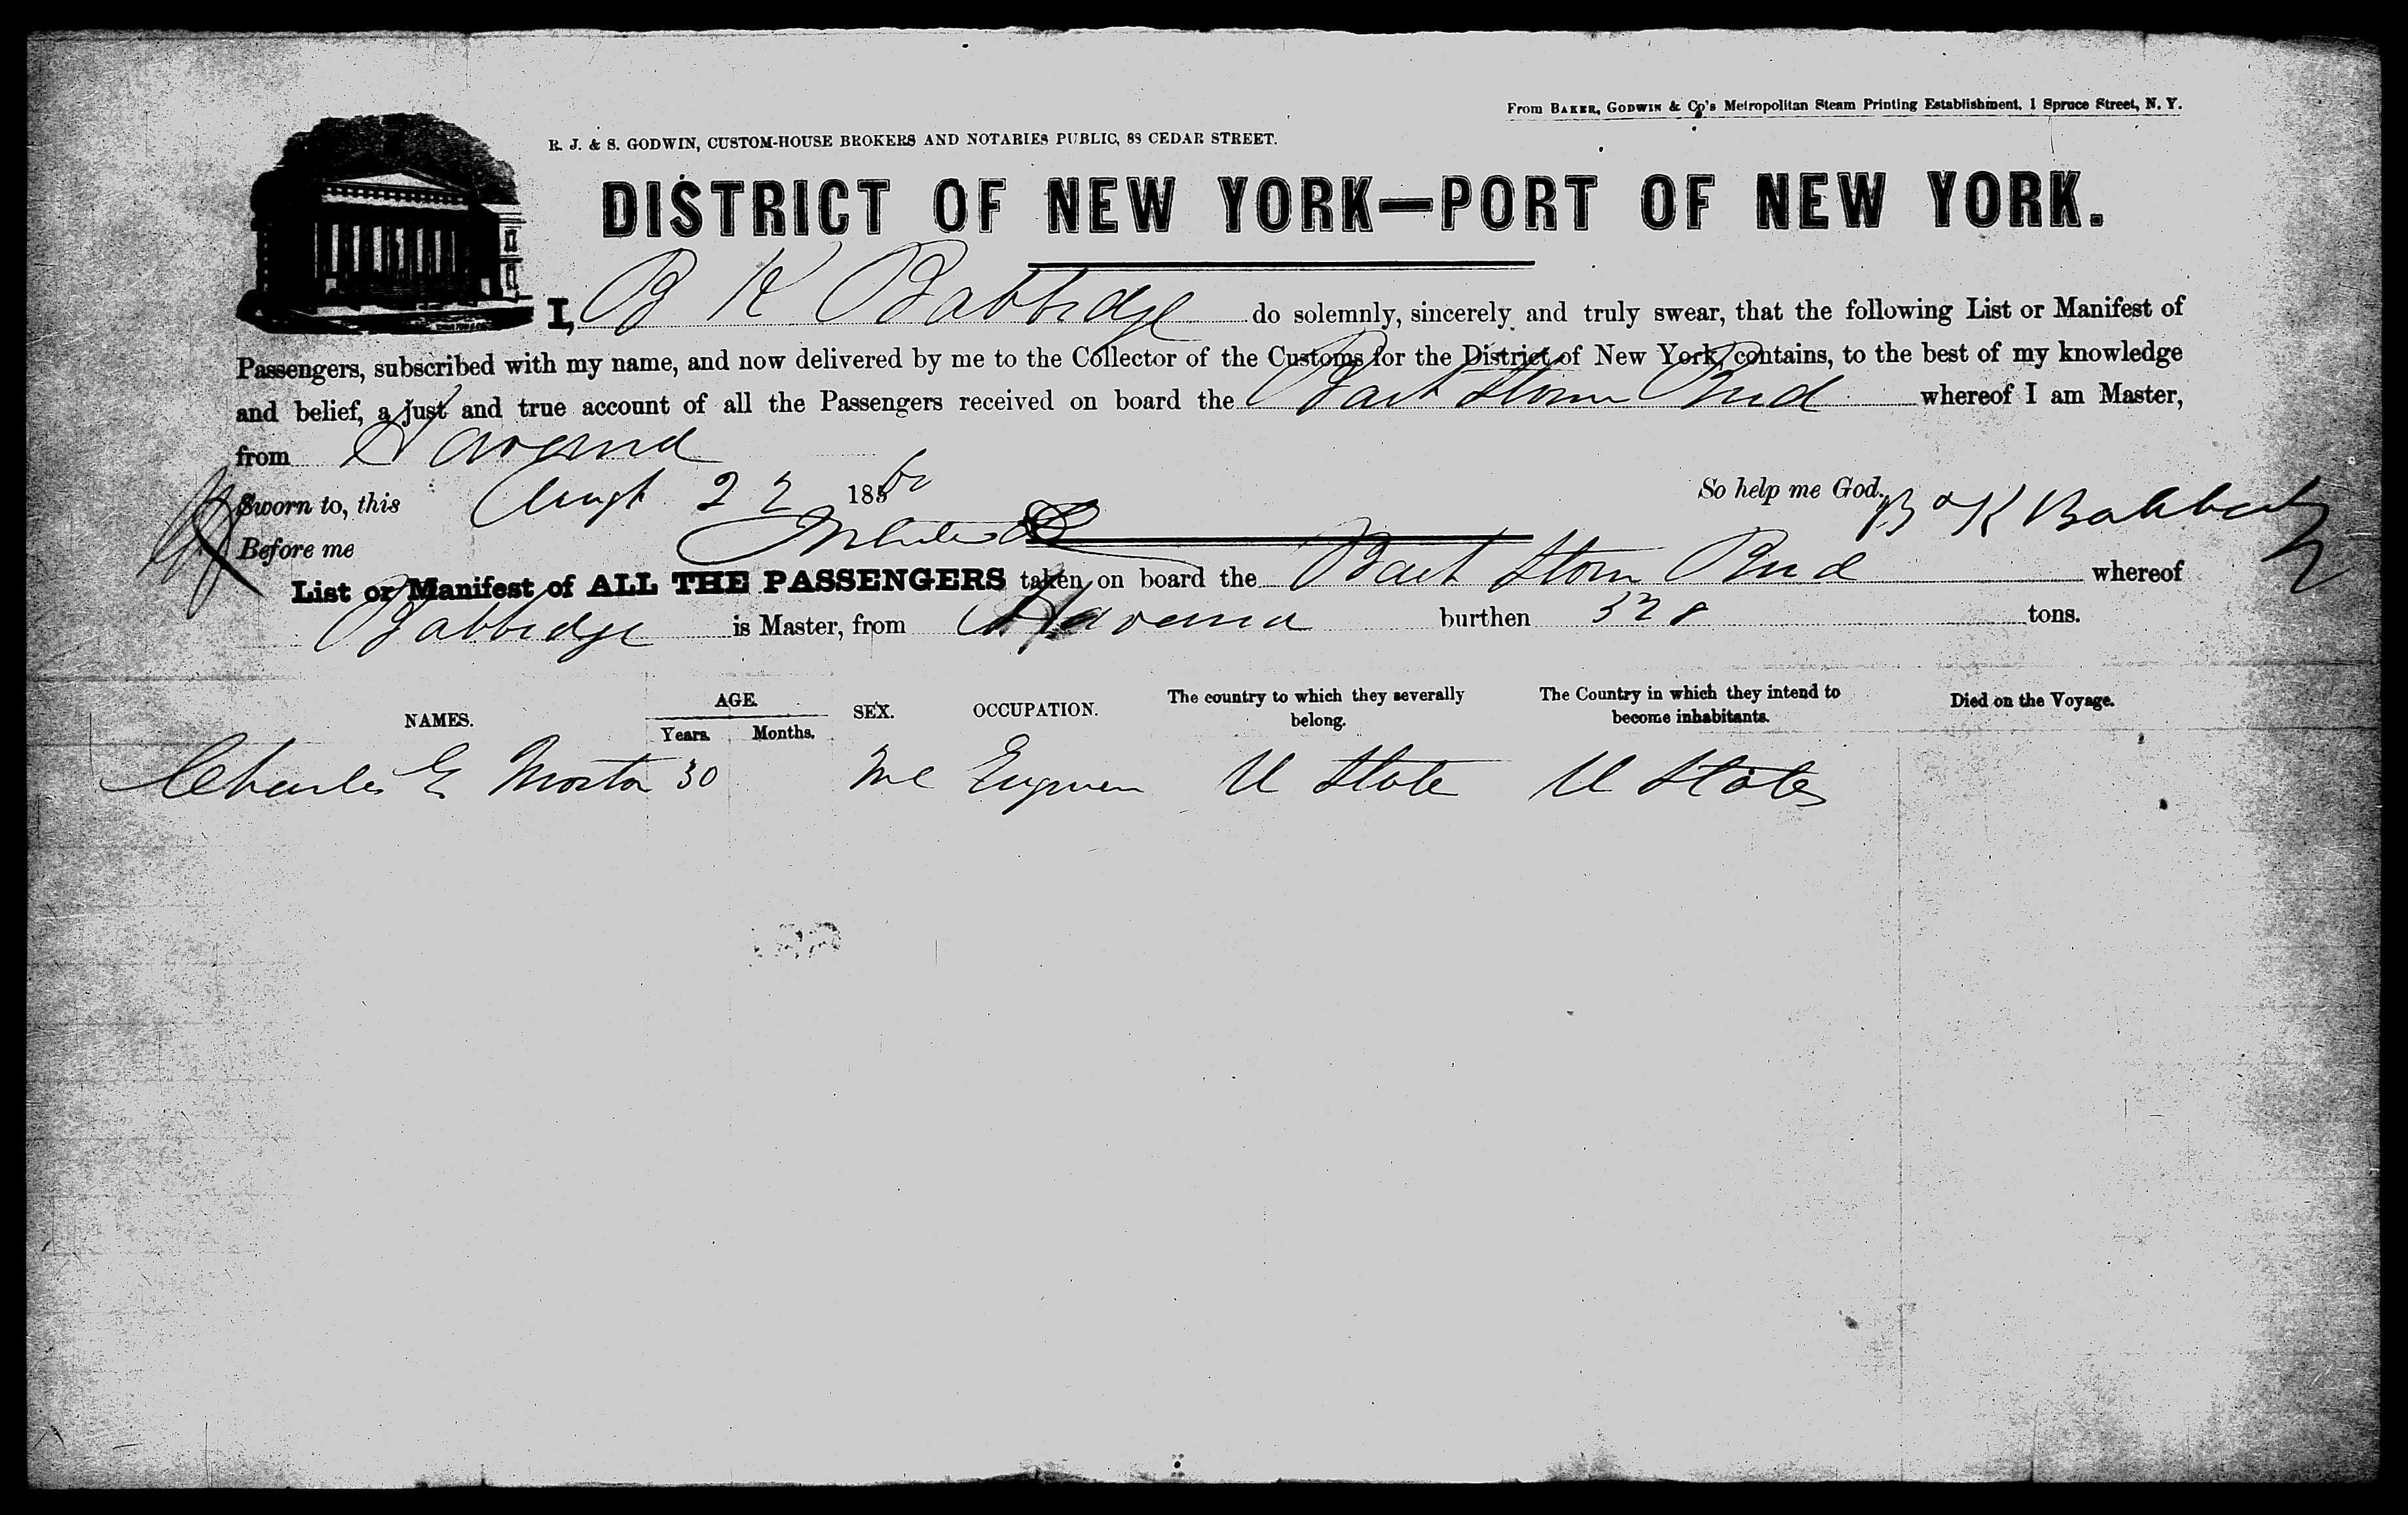 From BAKER, GODWIN & Co's Metropolitan Steam Printing Establishment, 1 Spruce Street, N. Y.
R. J. & S. GODWIN, CUSTOM-HOUSE BROKERS AND NOTARIES PUBLIC, 88 CEDAR STREET.
DISTRICT OF NEW YORK—PORT OF NEW YORK.
I, B K Babbidge do solemnly, sincerely and truly swear, that the following List or Manifest of
Passengers, subscribed with my name, and now delivered by me to the Collector of the Customs for the District of New York, contains, to the best of my knowledge
and belief, a just and true account of all the Passengers received on board the Bark Storm Bird whereof I am Master,
from Havana
Sworn to, this Augt 22 1860 So help me God. B K Babbidge
Before me
List or Manifest of ALL THE PASSENGERS taken on board the Bark Storm Bird whereof
Babbidge is Master, from Havana burthen 328 tons.
NAMES. AGE. Years. Months. SEX. OCCUPATION. The country to which they severally belong. The Country in which they intend to become inhabitants. Died on the Voyage.
Charles G Morton 30 Me Engineer U State U States